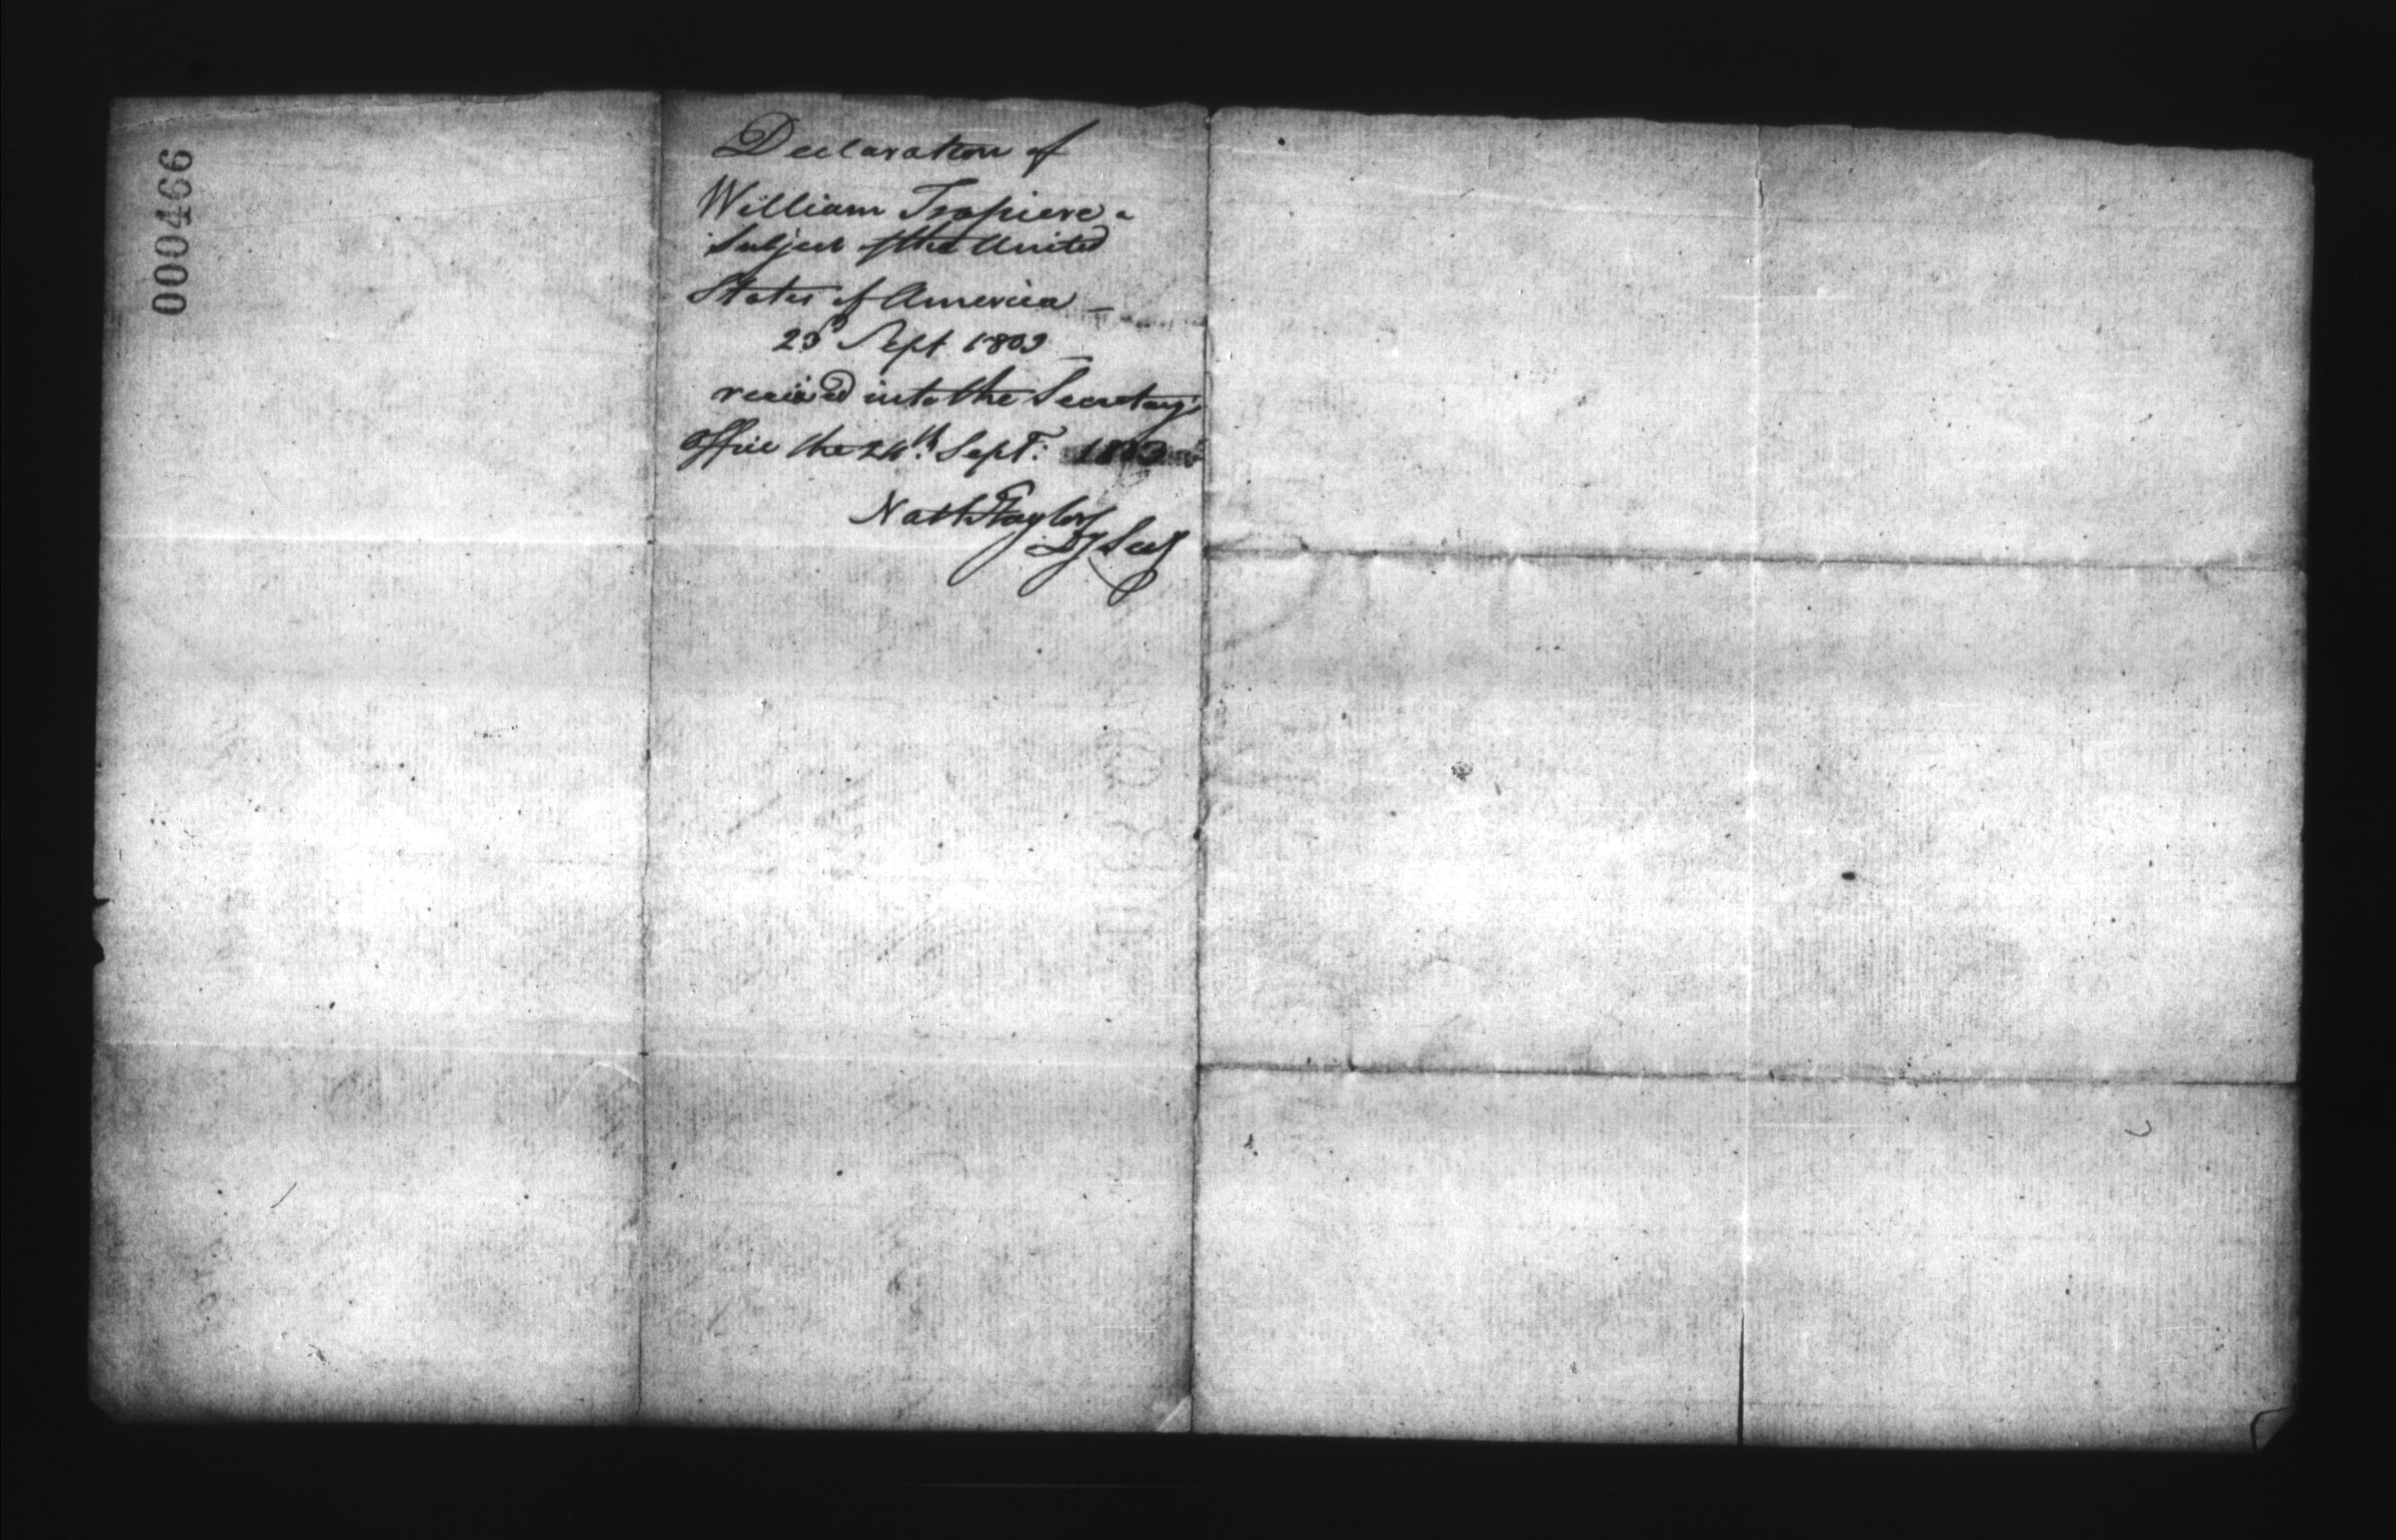 000466
Declaration of
William Trapiere a
Subject of the United
States of America —
23d Sept 1803
received into the Secretary's
Office the 24th. Sept: 1803
Nath Taylor
Dy Secy